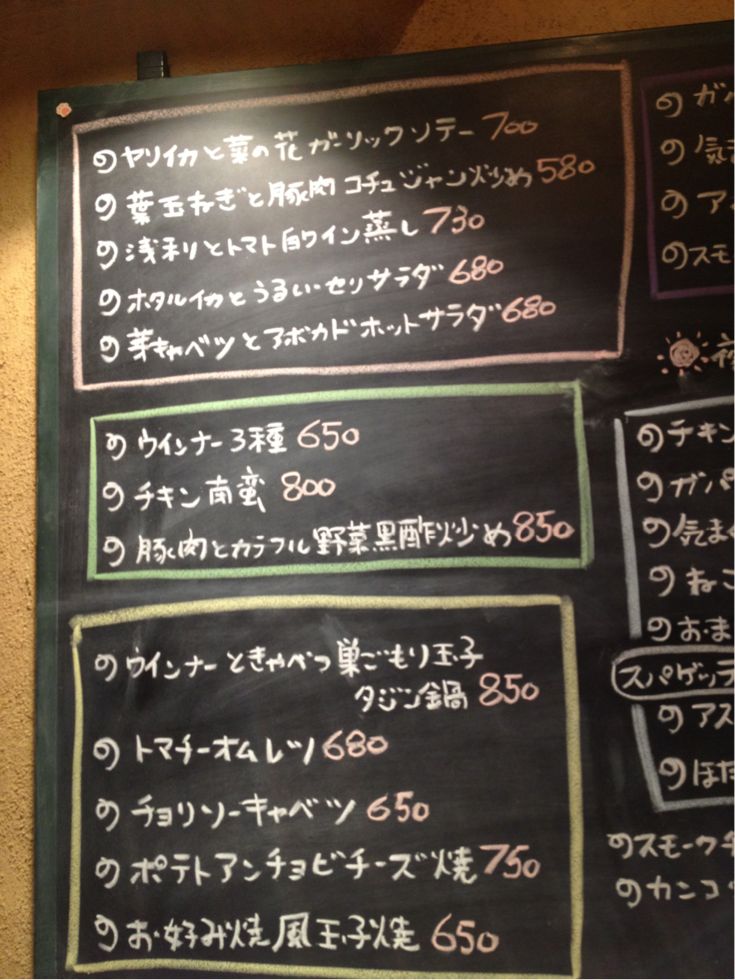 のヤリイカと菜の花ガーリックソテー700
の葉玉ねぎと豚肉コチュジャン炒め580
の浅利とトマト白ワイン蒸し730
のホタルイカとうるい・セリサラダ680
の芽キャベツとアボカドホットサラダ680
のウインナー3種 650
のチキン南蛮 800
の豚肉とカラフル野菜黒酢炒め850
のウインナーときゃべつ巣ごもり玉子
タジン鍋 850
のトマチーオムレツ680
のチョリソーキャベツ 650
のポテトアンチョビチーズ焼750
のお好み焼風玉子焼 650
のガ
の気ま
のア
のスモ
のチキン
のガパ
の気まぐ
のねこ
のお・ま
スパゲッテ
のアス
のほた
のスモークチ
のカンコ